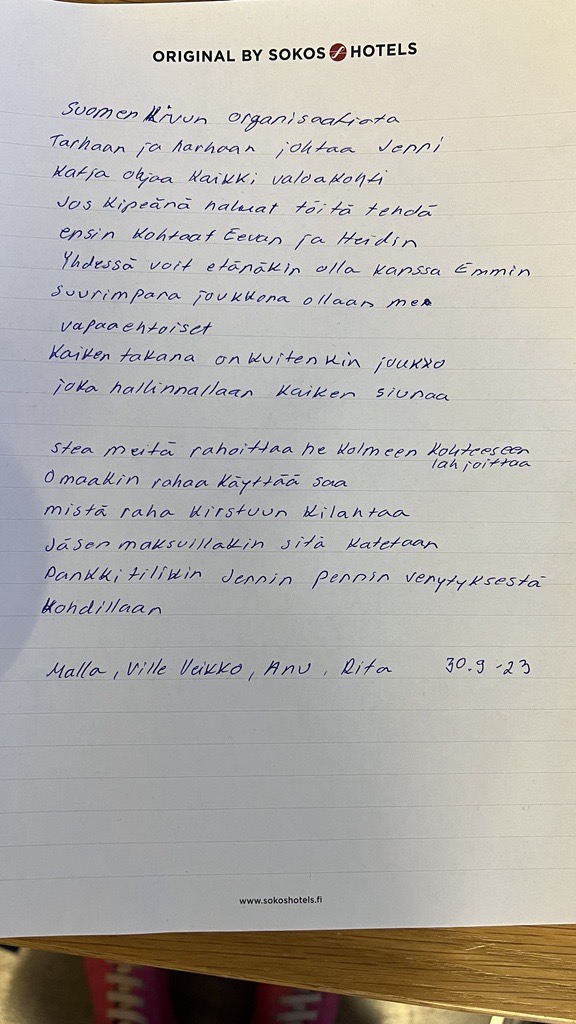 ORIGINAL BY SOKOS HOTELS
Suomen Kivun organisaatiota
Tarhaan ja harhaan johtaa Jenni
Katja ohjaa kaikki valoa kohti
Jos kipeänä haluat töitä tehdä
ensin kohtaat Eevan ja Heidin
Yhdessä voit etänäkin olla kanssa Emmin
suurimpana joukkona ollaan me
vapaaehtoiset
Kaiken takana on kuitenkin joukko
joka hallinnallaan kaiken siunaa
Stea meitä rahoittaa he kolmeen kohteeseen
lahjoittaa
Omaakin rahaa käyttää saa
mistä raha kirstuun kilahtaa
Jäsenmaksuillakin sitä katetaan
Pankkitilikin Jennin pennin venytyksestä
kohdillaan
Malla, Ville Veikko, Anu, Rita 30.9 -23
www.sokoshotels.fi